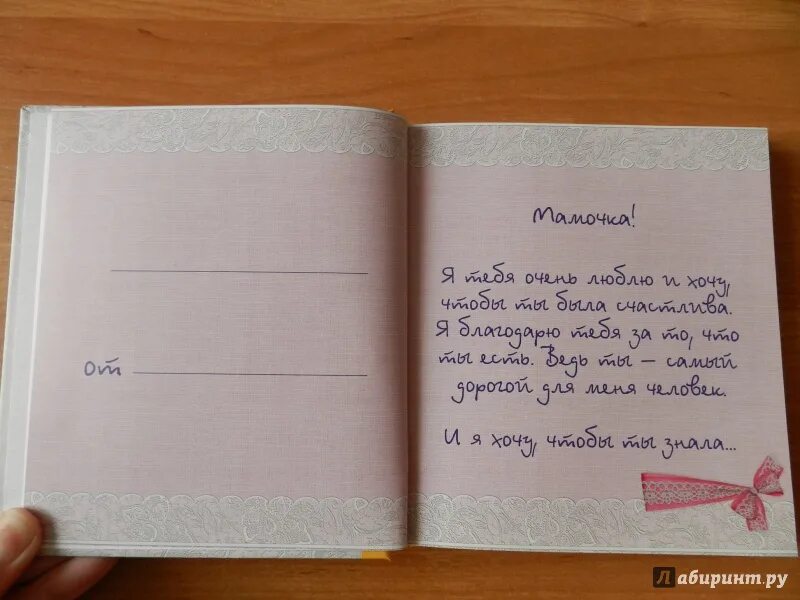 от
Мамочка!
Я тебя очень люблю и хочу,
чтобы ты была счастлива.
Я благодарю тебя за то, что
ты есть. Ведь ты – самый
дорогой для меня человек.
И я хочу, чтобы ты знала...
Лабиринт.ру